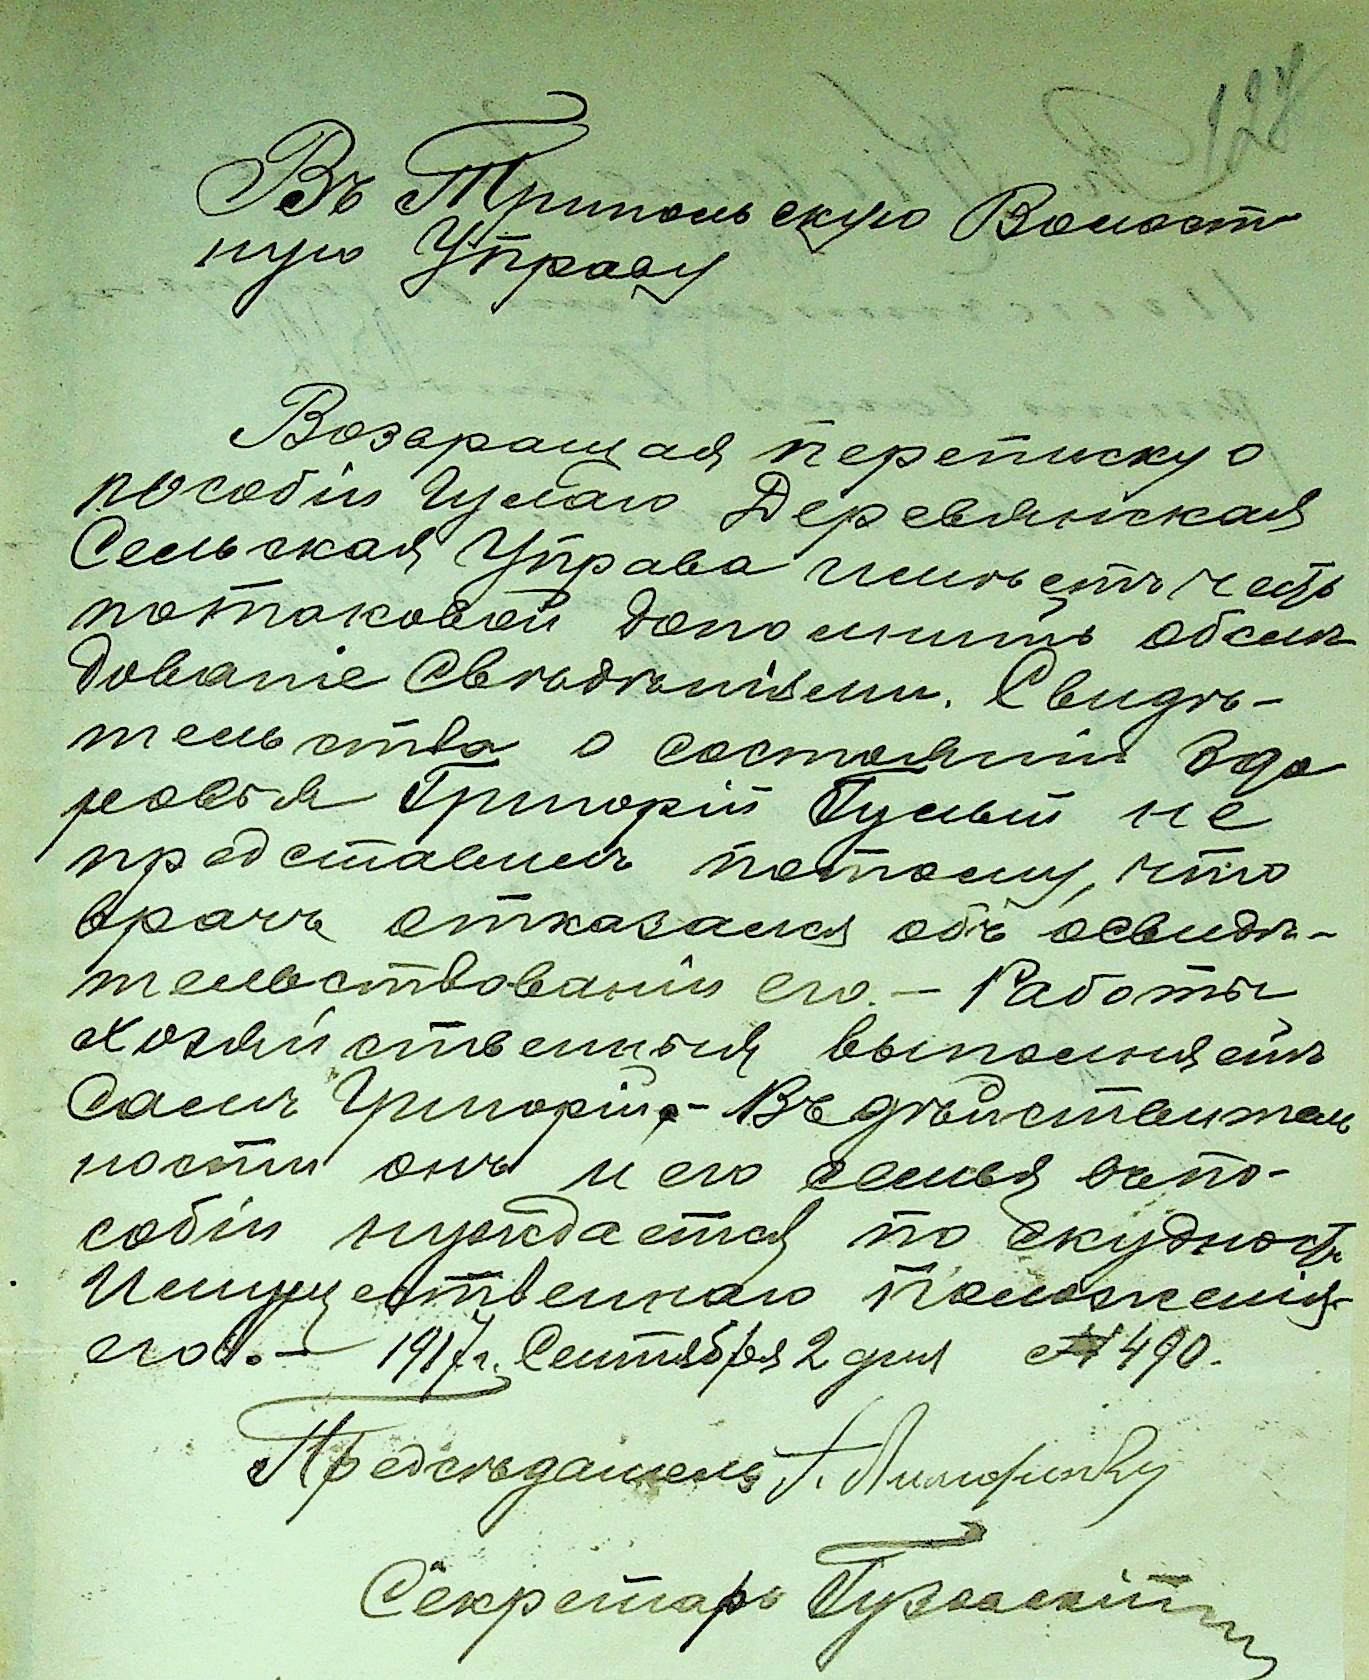 127
Въ Трипольскую Волост
ную Управу
Возвращая переписку о
пособіи Гулаго Деревянская
Сельская Управа имѣетъ честь
потаковой дополнить обслѣ
дованіе свѣдѣніями. Свидѣ-
тельства о состояніи здо
ровья Григорій Гулый не
представилъ потому, что
врачъ отказался объ освидѣ-
тельствованіи его. — Работы
хозяйственныя выполняетъ
самъ Григорій. — Въ дѣйствитель
ности онъ и его семья въ по-
собіи нуждается по скудности
Имущественнаго положенія
его. — 1917 г. Сентября 2 дня № 490.
Предсѣдатель Г.
Секретарь